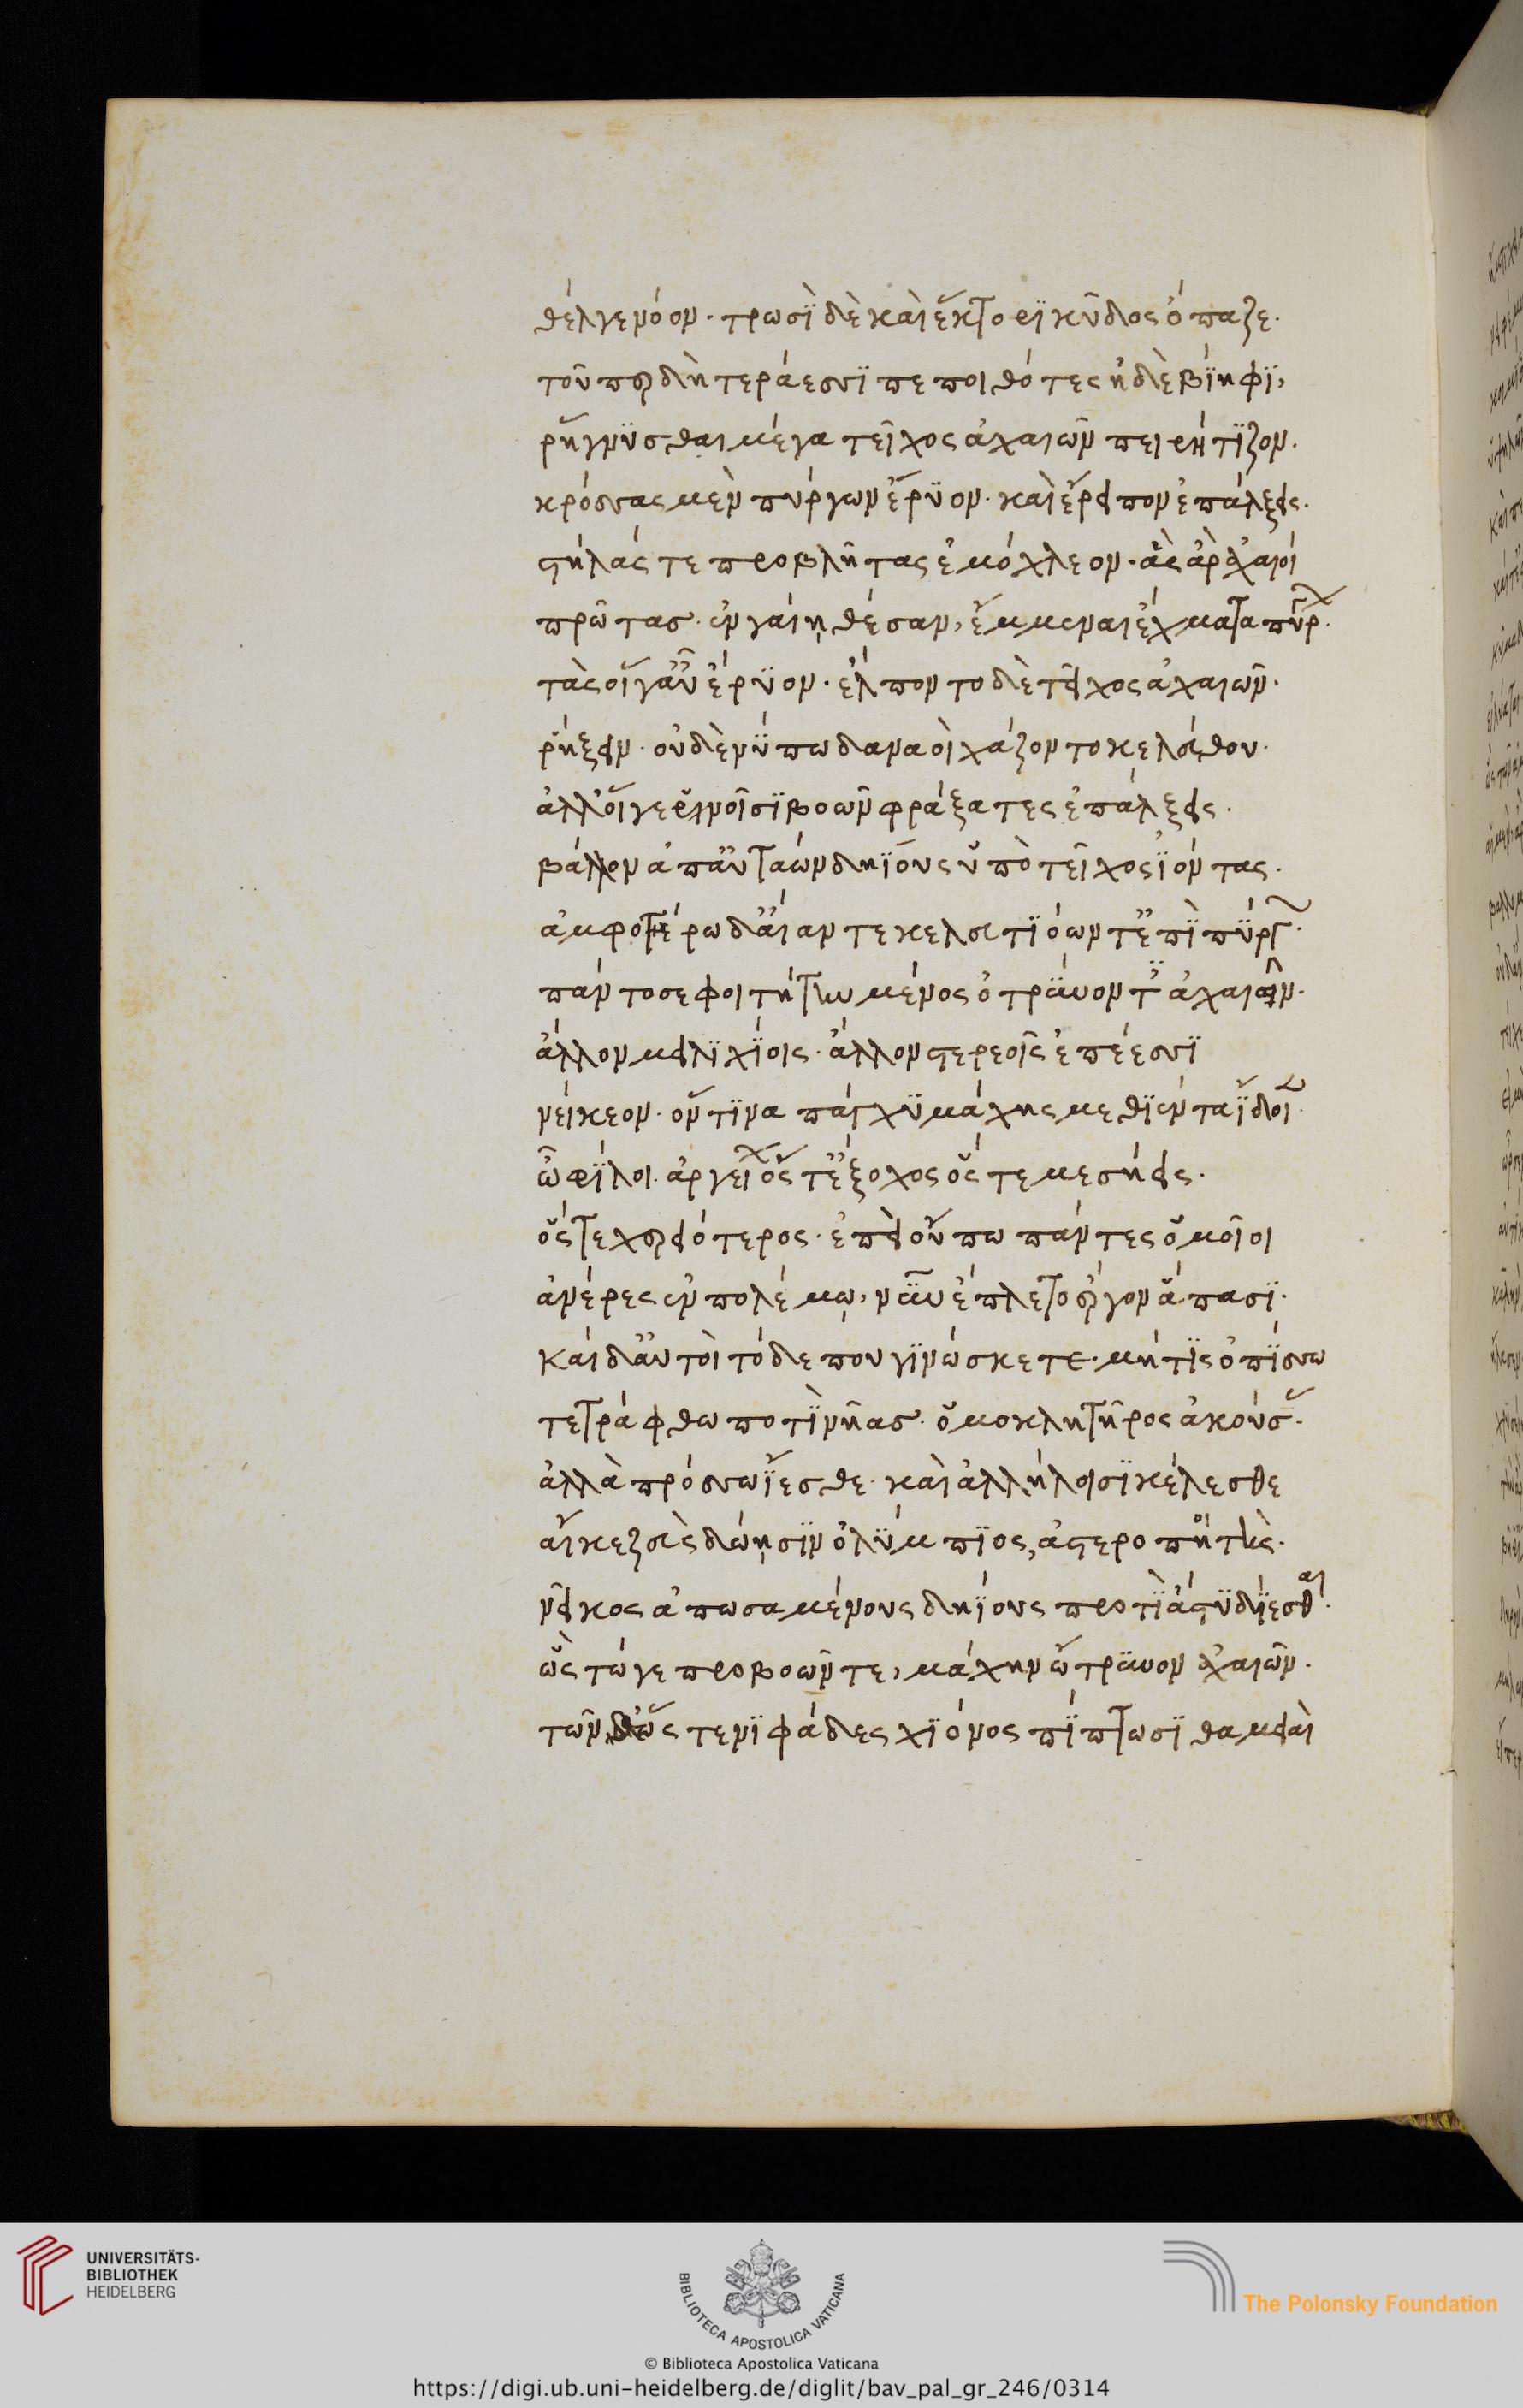 θέλγε νόον· τρωσὶ δὲ καὶ ἕκτορι κῦδος ὄπαζε·
τοῦ περ δὴ τεράεσσι πεποιθότες ἠδὲ βίηφι,
ῥήγνυσθαι μέγα τεῖχος ἀχαιῶν πειρήτιζον·
κρόσσας μὲν πύργων ἔρυον· καὶ ἔρειπον ἐπάλξεις·
στήλάς τε προβλῆτας ἐμόχλεον· ἃς ἄρ ἀχαιοὶ
πρώτας ἐν γαίῃ θέσαν, ἔμμεναι ἔχματα πύρ·
τὰς οἵγ' αὖ ἔρυον· ἔλποντο δὲ τεῖχος ἀχαιῶν·
ῥήξειν· οὐδὲ νύ πω δαναοὶ χάζοντο κελεύθου·
ἀλλ' οἵγε ῥινοῖσι βοῶν φράξατες ἐπάλξεις·
βάλλον ἀπ' αὐτάων δηίους ὑπὸ τεῖχος ἰόντας·
ἀμφοτέρω δ' αἴαντε κελευτιόων τ' ἐπὶ πύργ·
πάντοσε φοιτήτην μένος ὀτρύνοντ' ἀχαιῶν·
ἄλλον μειλιχίοις· ἄλλον στερεοῖς ἐπέεσσι
νείκεον· ὅν τινα πάγχυ μάχης μεθιέντα ἴδοι·
ὦ φίλοι ἀργείων ὅς τ' ἔξοχος ὅς τε μεσήεις·
ὅς τε χερειότερος· ἐπεὶ οὔπω πάντες ὁμοῖοι
ἀνέρες ἐν πολέμῳ, νῦν ἔπλετο ἔργον ἅπασι·
καὶ δ' αὐτοὶ τόδε που γινώσκετε· μήτις ὀπίσσω
τετράφθω ποτὶ νῆας ὁμοκλητῆρος ἀκούσ·
ἀλλὰ πρόσσω ἵεσθε· καὶ ἀλλήλοισι κέλεσθε
αἴ κε ζεὺς δώῃσιν ὀλύμπιος, ἀστεροπητής·
νεῖκος ἀπωσαμένους δηίους προτὶ ἄστυ δίεσθαι·
ὣς τώγε προβοῶντε, μάχην ὤτρυνον ἀχαιῶν·
τῶν δ' ὥς τε νιφάδες χιόνος πίπτωσι θαμειαὶ
UNIVERSITÄTS-
BIBLIOTHEK
HEIDELBERG
BIBLIOTECA APOSTOLICA VATICANA
The Polonsky Foundation
© Biblioteca Apostolica Vaticana
https://digi.ub.uni-heidelberg.de/diglit/bav_pal_gr_246/0314